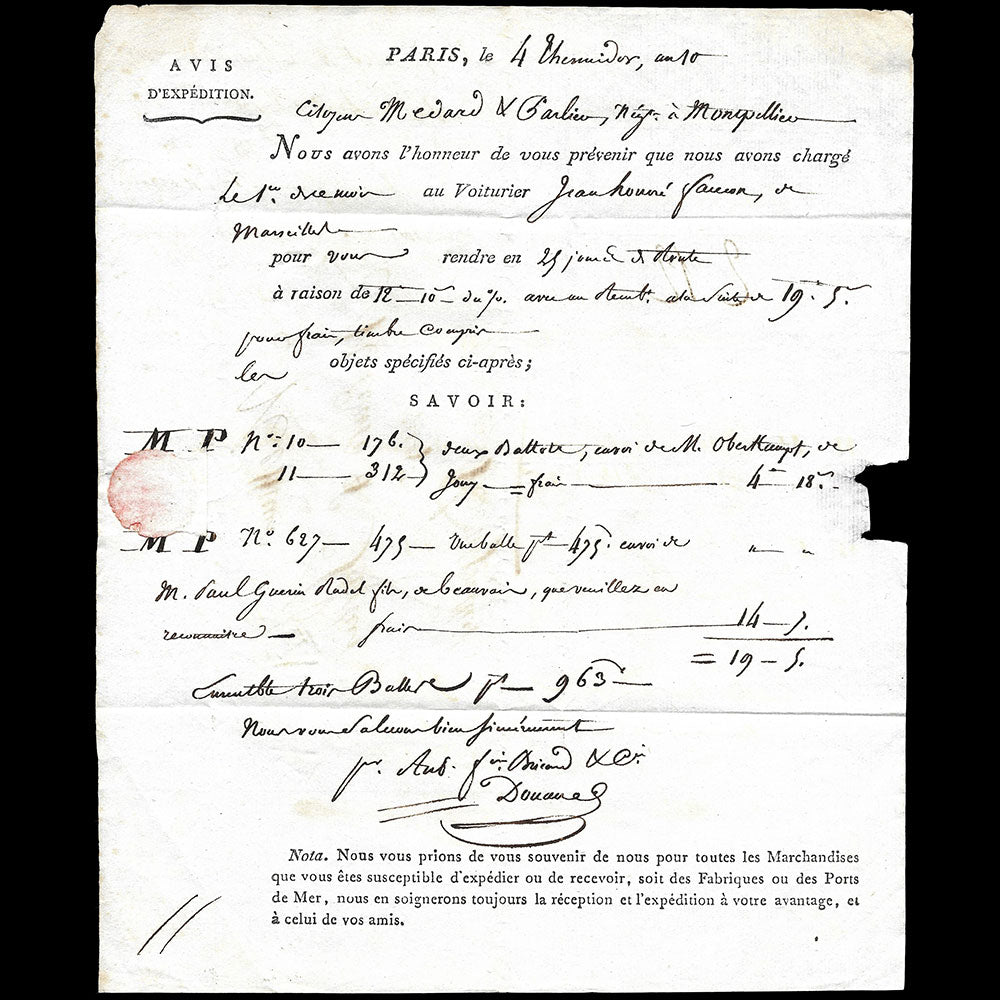 AVIS
D'EXPÉDITION.
PARIS, le 4 Thermidor, an 10
Citoyens Medard & Parlier, Négts. à Montpellier
Nous avons l'honneur de vous prévenir que nous avons chargé
Le 1er. de ce mois au Voiturier Jean honoré faucon, de
Marseille
pour vous rendre en 25 jours de Route
à raison de 12 10s du % avec un Remb.t à la Suite de 19 5s
pour frais, timbre Compris
les objets spécifiés ci-après;
SAVOIR:
M P Nos. 10 — 176. deux Ballots, envoi de M. Oberkampf, de
11 — 312 Jouy = frais — 4 18s.
M P No. 627 — 475 — Une balle pt 475. envoi de " — "
M. Paul Guerin Radel fils, de beauvais, que veuillez en
reconnaitre — frais — 14 — 7.
= 19 — 5.
Ensemble trois Balles pt — 963
Nous vous Saluons bien sincérement
pr. Ant. Bricard & Cie
Douane
Nota. Nous vous prions de vous souvenir de nous pour toutes les Marchandises
que vous êtes susceptible d'expédier ou de recevoir, soit des Fabriques ou des Ports
de Mer, nous en soignerons toujours la réception et l'expédition à votre avantage, et
à celui de vos amis.